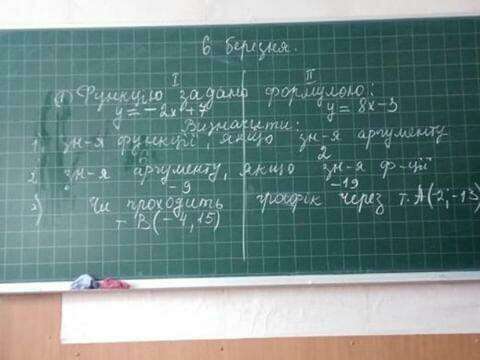 6 березня.
I II
1) Функцію задано формулою:
y = -2x + 7 y = 8x - 3
Визначити:
1. зн-я функції, якщо зн-я аргументу
2
2. зн-я аргументу, якщо зн-я ф-ції
-9 -19
3) Чи проходить графік через т. A(-2; -13)
т. B(-4, 15)